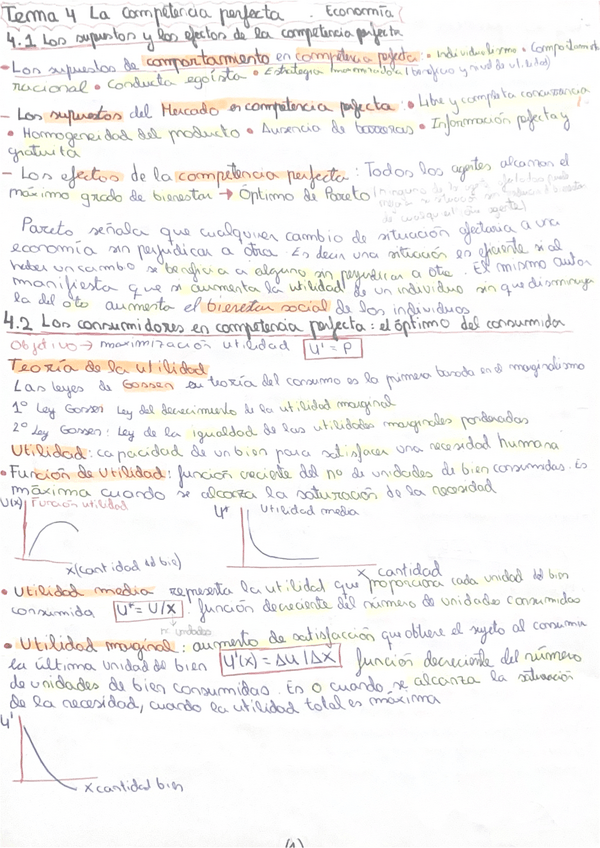 Tema 4 La competencia perfecta. Economía
4.1 Los supuestos y los efectos de la competencia perfecta
- Los supuestos de comportamiento en competencia perfecta: • Individualismo • Comportamiento
racional • Conducta egoísta • Estrategia (beneficio y nivel de utilidad)
- Los supuestos del Mercado en competencia perfecta: • Libre y completa concurrencia
• Homogeneidad del producto • Ausencia de barreras • Información perfecta y
gratuita
- Los efectos de la competencia perfecta: Todos los agentes alcanzan el
máximo grado de bienestar → Óptimo de Pareto
Pareto señala que cualquier cambio de situación afectaría a una
economía sin perjudicar a otra. Es decir una situación es eficiente si al
haber un cambio se beneficia a alguno sin perjudicar a otro. El mismo autor
manifiesta que si aumenta la utilidad de un individuo sin que disminuya
la del otro aumenta el bienestar social de los individuos
4.2 Los consumidores en competencia perfecta: el óptimo del consumidor
Objetivo → maximización utilidad U' = P
Teoría de la utilidad
Las leyes de Gossen su teoría del consumo es la primera basada en el marginalismo
1º Ley Gossen Ley del decrecimiento de la utilidad marginal
2º Ley Gossen: Ley de la igualdad de las utilidades marginales ponderadas
Utilidad: capacidad de un bien para satisfacer una necesidad humana
• Función de utilidad: función creciente del nº de unidades de bien consumidas. Es
máxima cuando se alcanza la saturación de la necesidad
U(x) Función utilidad
U* Utilidad media
x (cantidad del bien)
x cantidad
• Utilidad media representa la utilidad que proporciona cada unidad del bien
consumida U* = U/X. función decreciente del número de unidades consumidas
nº unidades
• Utilidad marginal: aumento de satisfacción que obtiene el sujeto al consumir
la última unidad de bien U'(x) = ΔU/ΔX función decreciente del número
de unidades de bien consumidas. Es 0 cuando se alcanza la saturación
de la necesidad, cuando la utilidad total es máxima
U'
x cantidad bien
(1)